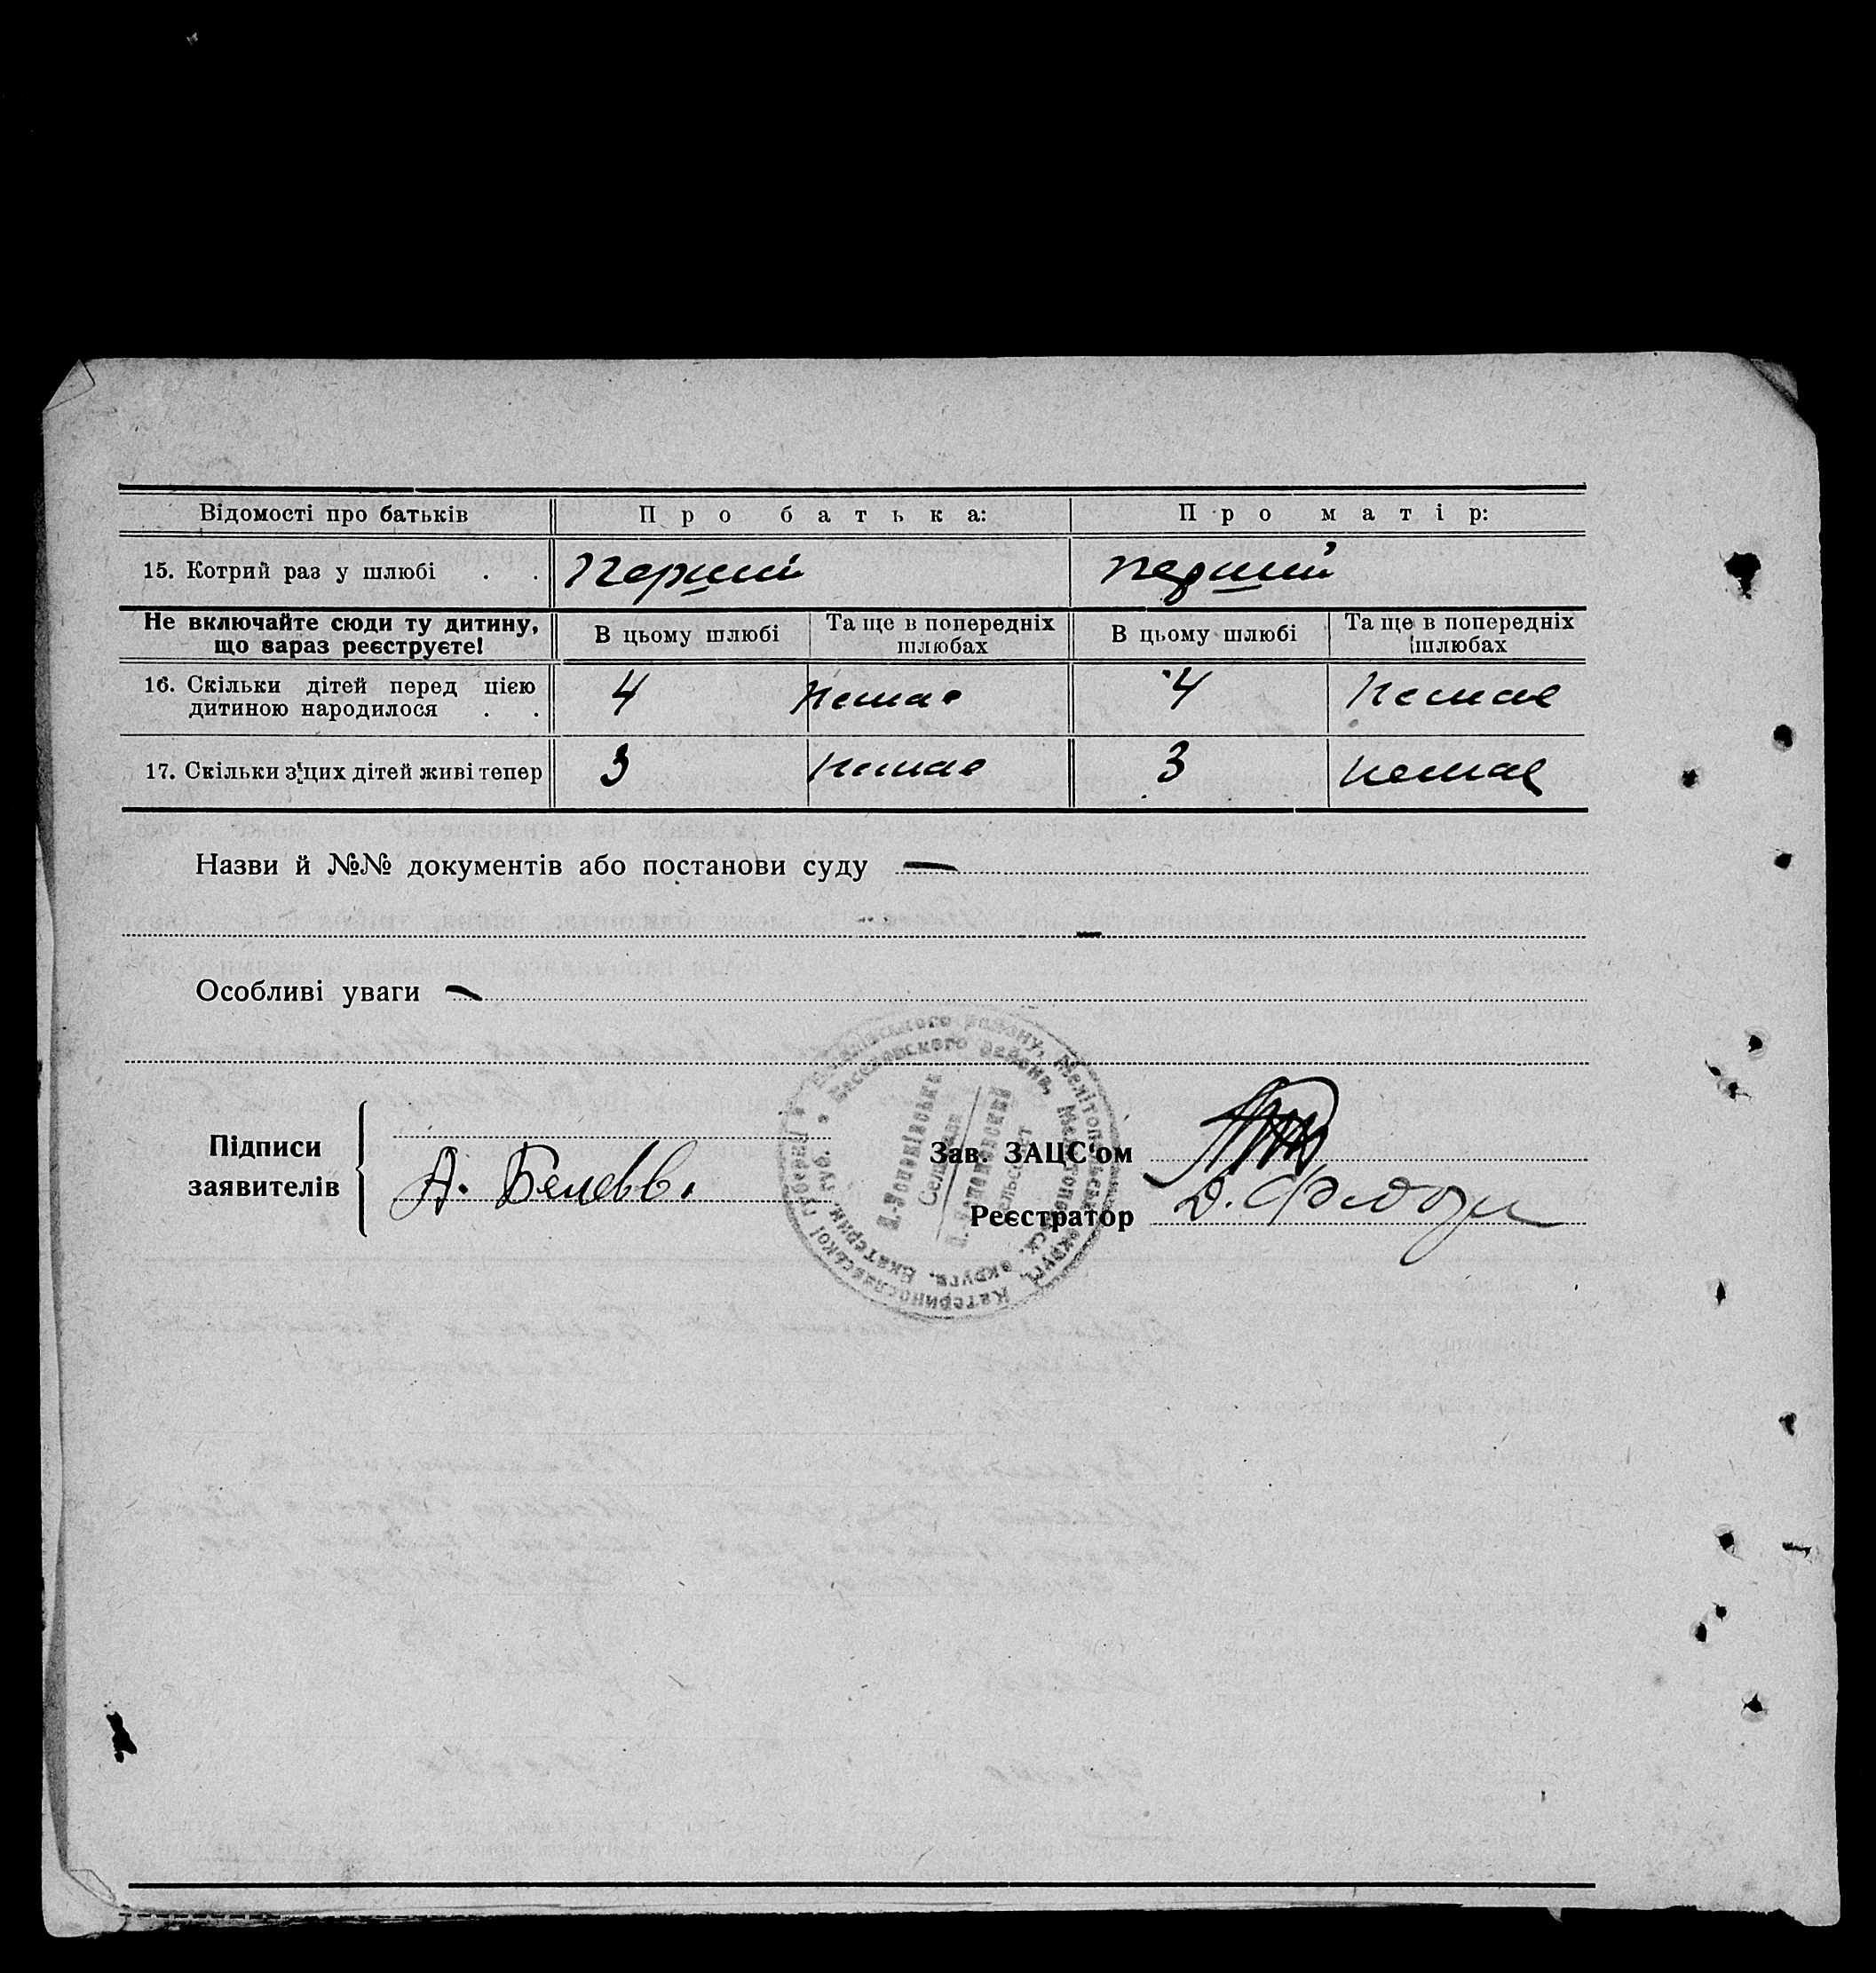 Відомості про батьків Про батька: Про матір:
15. Котрий раз у шлюбі . . Перший перший
Не включайте сюди ту дитину, що зараз реєструєте! В цьому шлюбі Та ще в попередніх шлюбах В цьому шлюбі Та ще в попередніх шлюбах
16. Скільки дітей перед цією дитиною народилося . . 4 немає 4 немає
17. Скільки з цих дітей живі тепер 3 немає 3 немає
Назви й №№ документів або постанови суду —
—
Особливі уваги —
Підписи заявителів
А.
Зав. ЗАЦС'ом
Реєстратор Д.